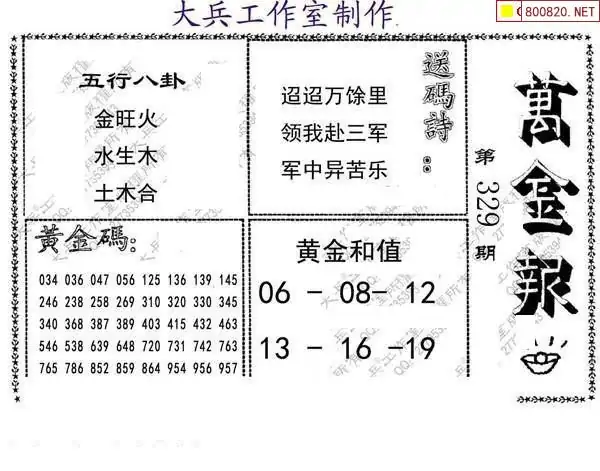 大兵工作室制作
800820.NET
五行八卦
金旺火
水生木
土木合
送碼詩：
迢迢万馀里
领我赴三军
军中异苦乐
萬金报
第329期
黃金碼：
034 036 047 056 125 136 139 145
246 238 258 269 310 320 330 345
340 368 387 389 403 415 432 463
546 538 639 648 720 731 742 763
765 786 852 859 864 954 956 957
黄金和值
06 - 08- 12
13 - 16 -19